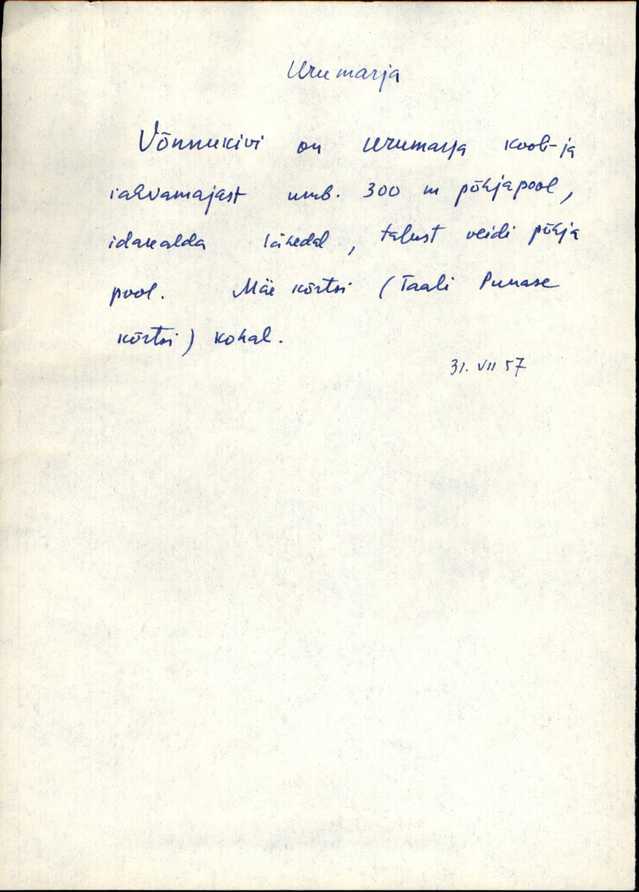 Urumarja
Võnnukivi on Urumarja koob-ja
rahvamajast umb. 300 m põhjapool,
lähedal, talust veidi põhja
pool. Mäe kõrtsi (Taali Punase
kõrtsi) kohal.
31. VII 57